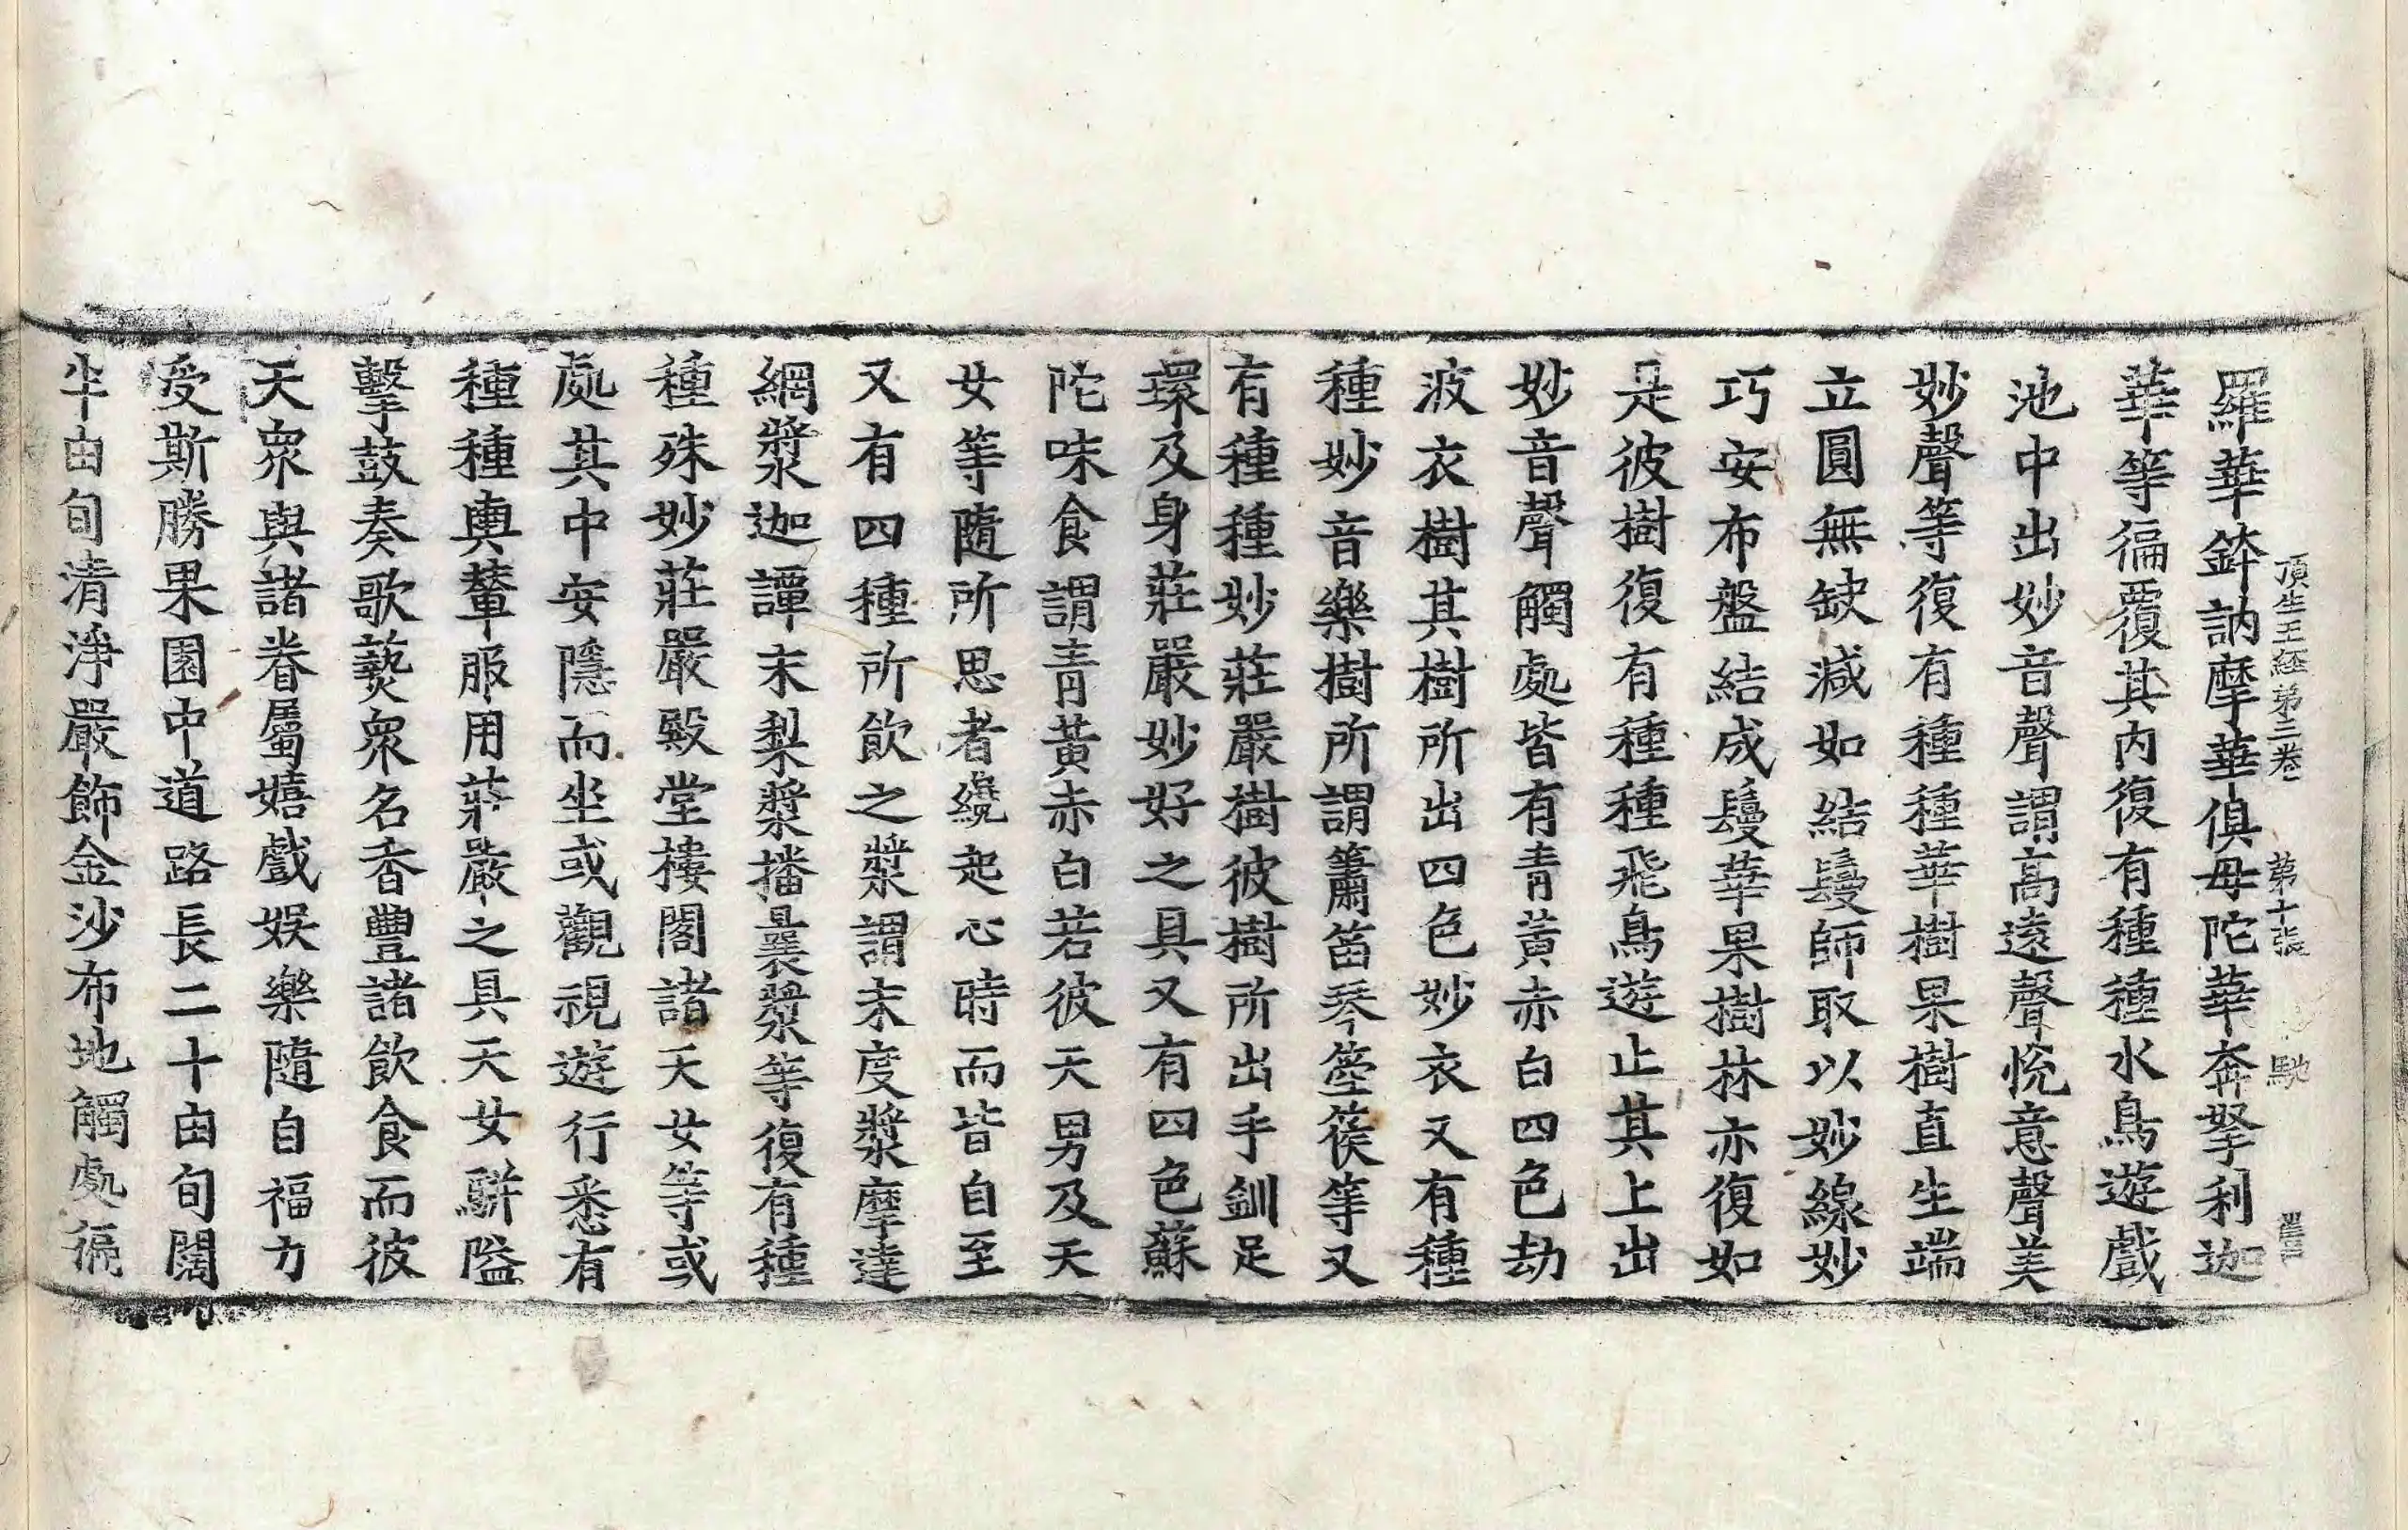 頂生王経第三卷　第十張　馳
羅華鉢訥摩華俱母陀華奔拏利迦
華等徧覆其内復有種種水鳥遊戲
池中出妙音聲謂高遠聲悅意聲美
妙聲等復有種種華樹果樹直生端
立圓無缺減如結鬘師取以妙線妙
巧安布盤結成鬘華果樹林亦復如
是彼樹復有種種飛鳥遊止其上出
妙音聲觸處皆有青黃赤白四色劫
波衣樹其樹所出四色妙衣又有種
種妙音樂樹所謂簫笛琴箜篌等又
有種種妙莊嚴樹彼樹所出手釧足
環及身莊嚴妙好之具又有四色蘇
陀味食謂青黃赤白若彼天男及天
女等隨所思者纔起心時而皆自至
又有四種所飲之漿謂末度漿摩達
網漿迦譚末梨漿播曩漿等復有種
種殊妙莊嚴殿堂樓閣諸天女等或
處其中安隱而坐或觀視遊行悉有
種種輿輦服用莊嚴之具天女騈隘
擊鼓奏歌爇衆名香豐諸飲食而彼
天衆與諸眷屬嬉戲娛樂隨自福力
受斯勝果園中道路長二十由旬闊
半由旬清淨嚴飾金沙布地觸處徧